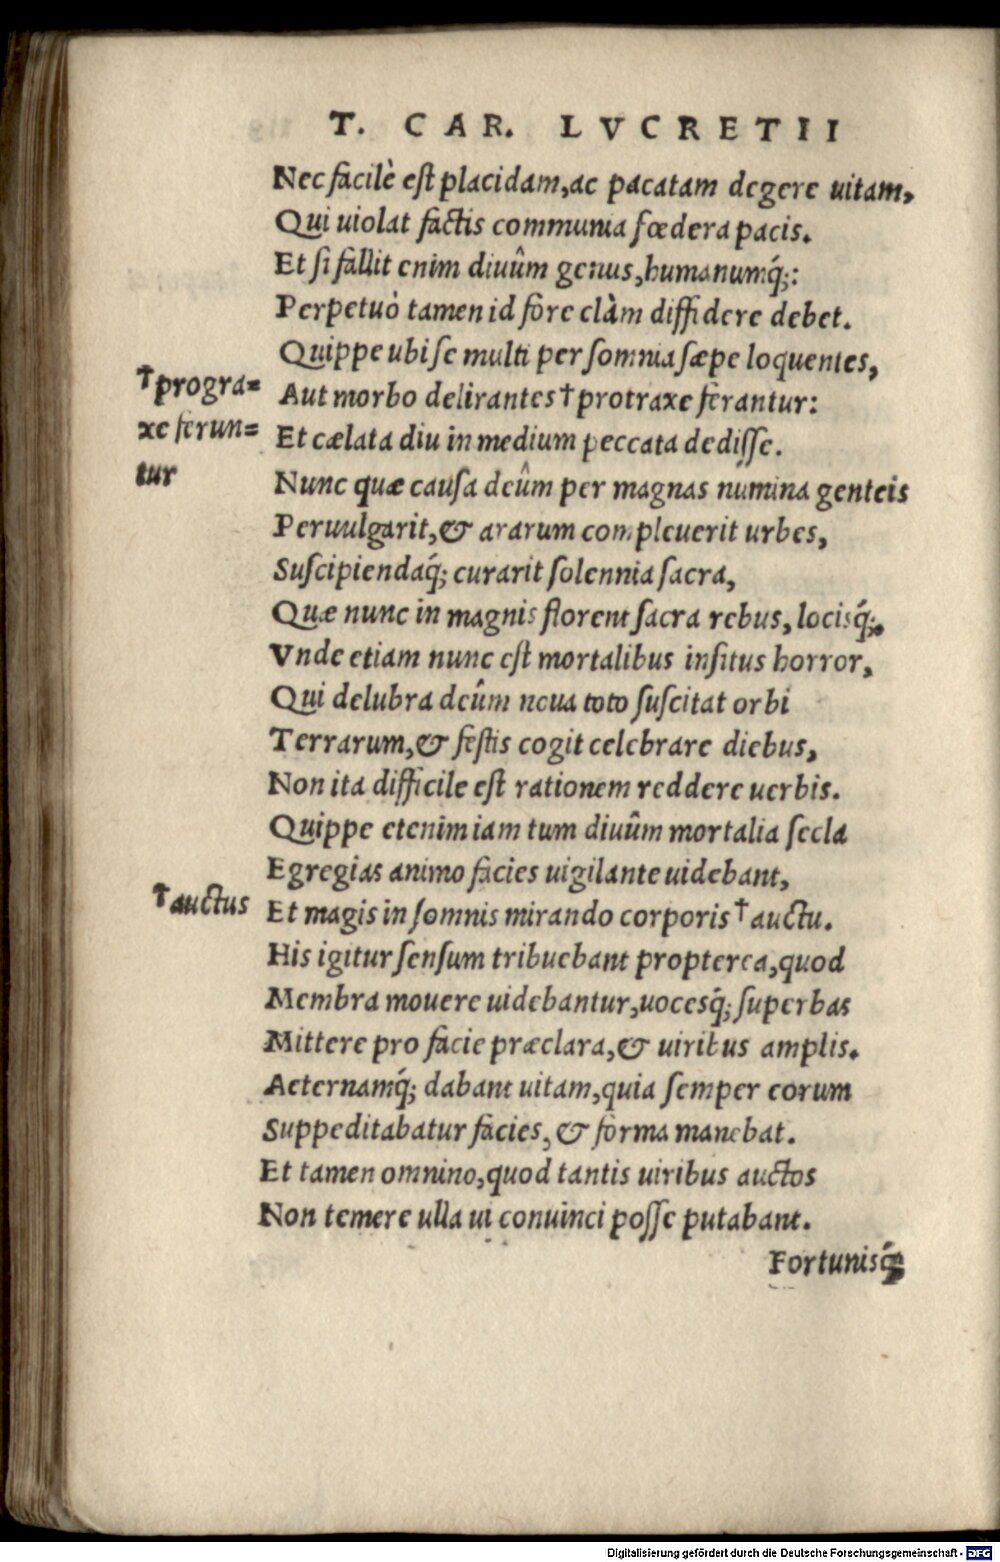 T. CAR. LVCRETII
Nec facilè est placidam, ac pacatam degere uitam,
Qui uiolat factis communia fœdera pacis.
Et si fallit enim diuûm genus, humanumq́;:
Perpetuò tamen id fore clàm diffidere debet.
Quippe ubi se multi per somnia sæpe loquentes,
Aut morbo delirantes † protraxe ferantur:
†progra=
xe ferun=
tur
Et cælata diu in medium peccata dedisse.
Nunc quæ causa deûm per magnas numina genteis
Peruulgarit, & ararum compleuerit urbes,
Suscipiendaq́; curarit solennia sacra,
Quæ nunc in magnis florent sacra rebus, locisq́;,
Vnde etiam nunc est mortalibus insitus horror,
Qui delubra deûm noua toto suscitat orbi
Terrarum, & festis cogit celebrare diebus,
Non ita difficile est rationem reddere uerbis.
Quippe etenim iam tum diuûm mortalia secla
Egregias animo facies uigilante uidebant,
Et magis in somnis mirando corporis † auctu.
†auctus
His igitur sensum tribuebant propterea, quod
Membra mouere uidebantur, uocesq́; superbas
Mittere pro facie præclara, & uiribus amplis.
Aeternamq́; dabant uitam, quia semper eorum
Suppeditabatur facies, & forma manebat.
Et tamen omnino, quod tantis uiribus auctos
Non temere ulla ui conuinci posse putabant.
Fortunisq́;
Digitalisierung gefördert durch die Deutsche Forschungsgemeinschaft - DFG